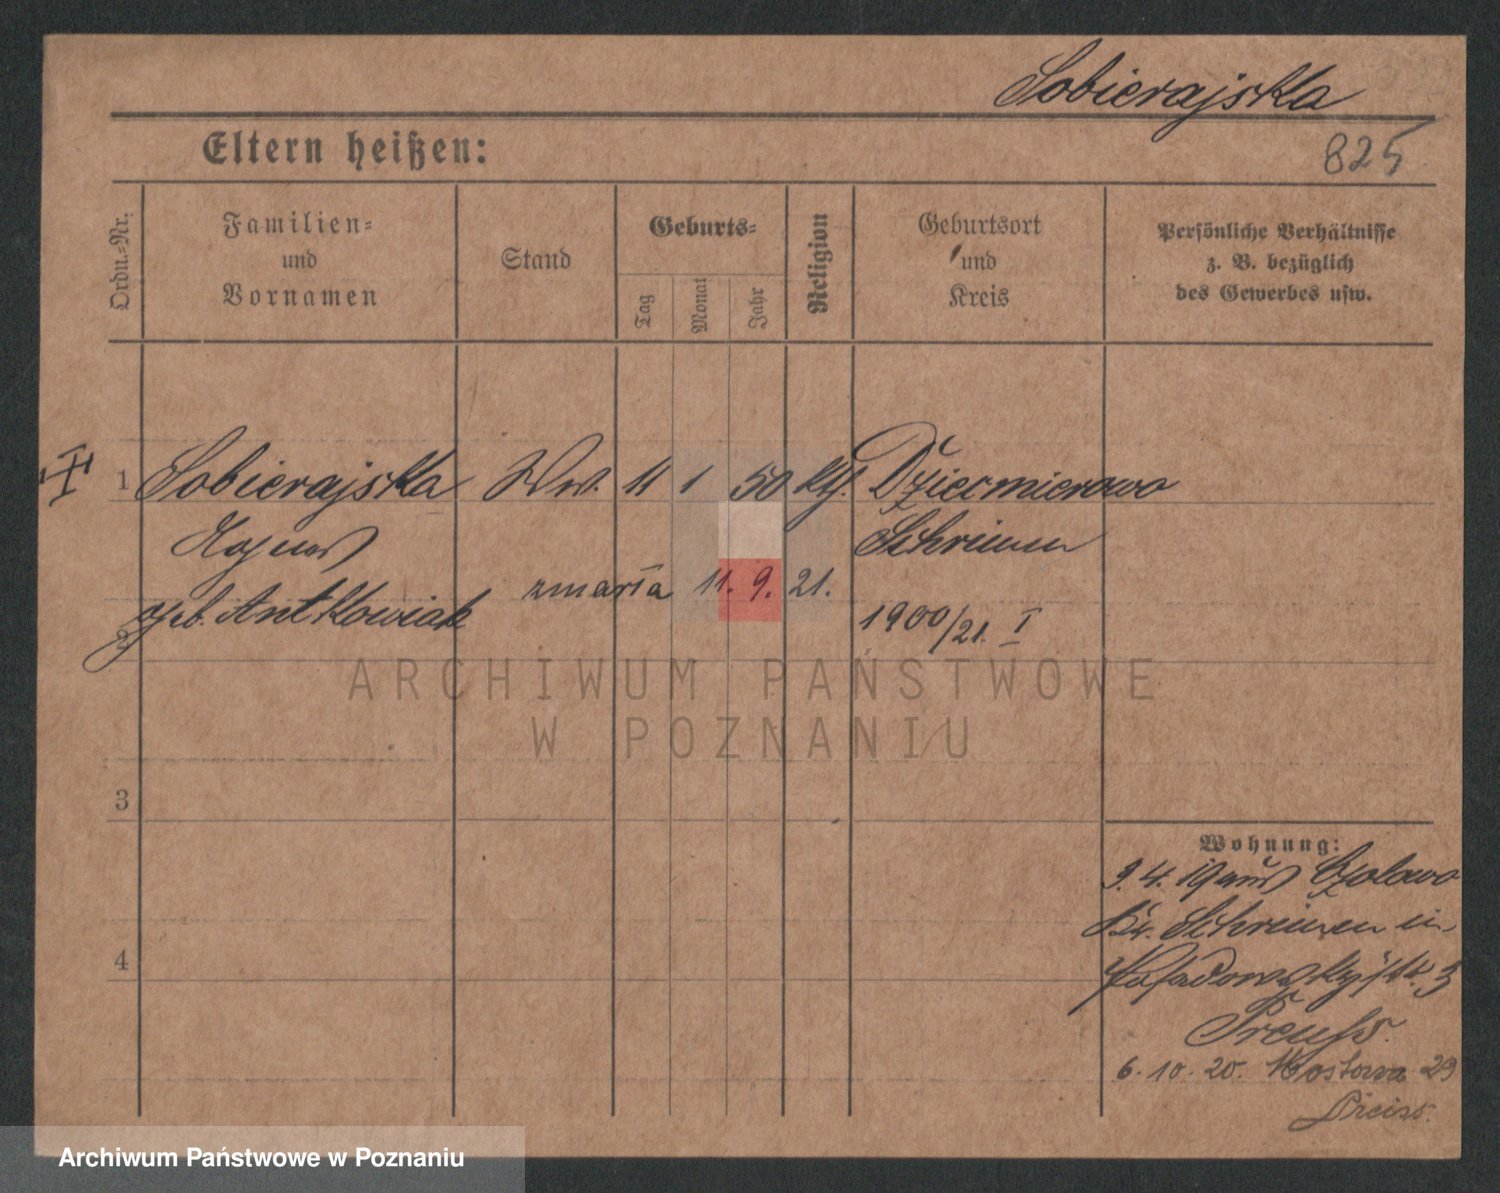 Sobierajska
825
Eltern heißen:
Ordn.-Nr.
Familien-
und
Vornamen
Stand
Geburts-
Tag
Monat
Jahr
Religion
Geburtsort
und
Kreis
Persönliche Verhältnisse
z. B. bezüglich
des Gewerbes usw.
1 Sobierajska Ww. 11 1 50 kth. Dziecmierowo
Schrimm
geb. Antkowiak zmarła 11. 9. 21. 1900/21. I
2
ARCHIWUM PAŃSTWOWE
W POZNANIU
3
Wohnung:
9. 4. 19 aus Czolowo
Kr. Schrimm in
4
3
Preuss.
6. 10. 20. Mostowa 29
Preiss.
Archiwum Państwowe w Poznaniu